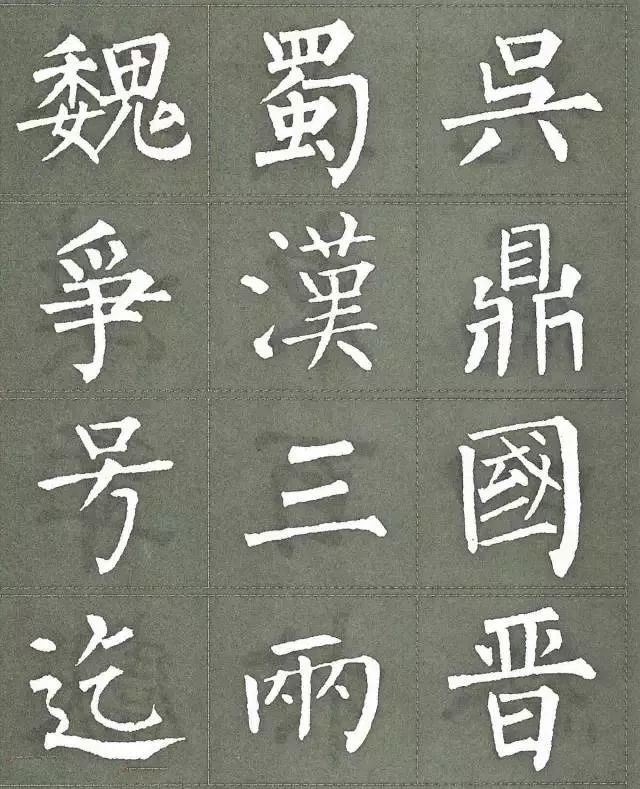 魏蜀吳
爭漢鼎
号三國
迄兩晋